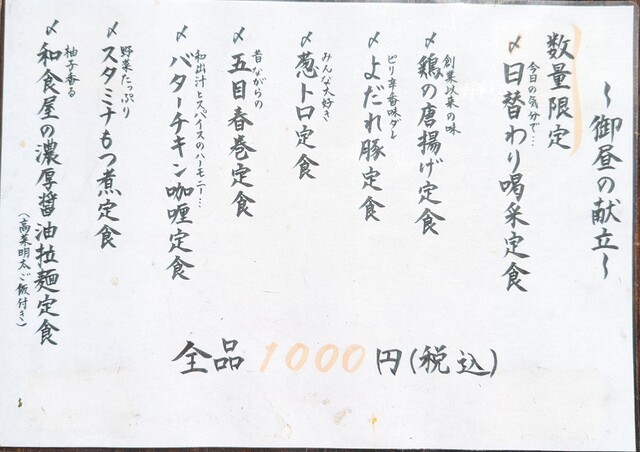 ～御昼の献立～
数量限定
今日の気分で…
〆日替わり喝采定食
創業以来の味
〆鶏の唐揚げ定食
ピリ辛香味ダレ
〆よだれ豚定食
みんな大好き
〆葱トロ定食
昔ながらの
〆五目春巻定食
和出汁とスパイスのハーモニー…
〆バターチキン咖喱定食
野菜たっぷり
〆スタミナもつ煮定食
柚子香る
〆和食屋の濃厚醤油拉麺定食
(高菜明太ご飯付き)
全品1000円(税込)